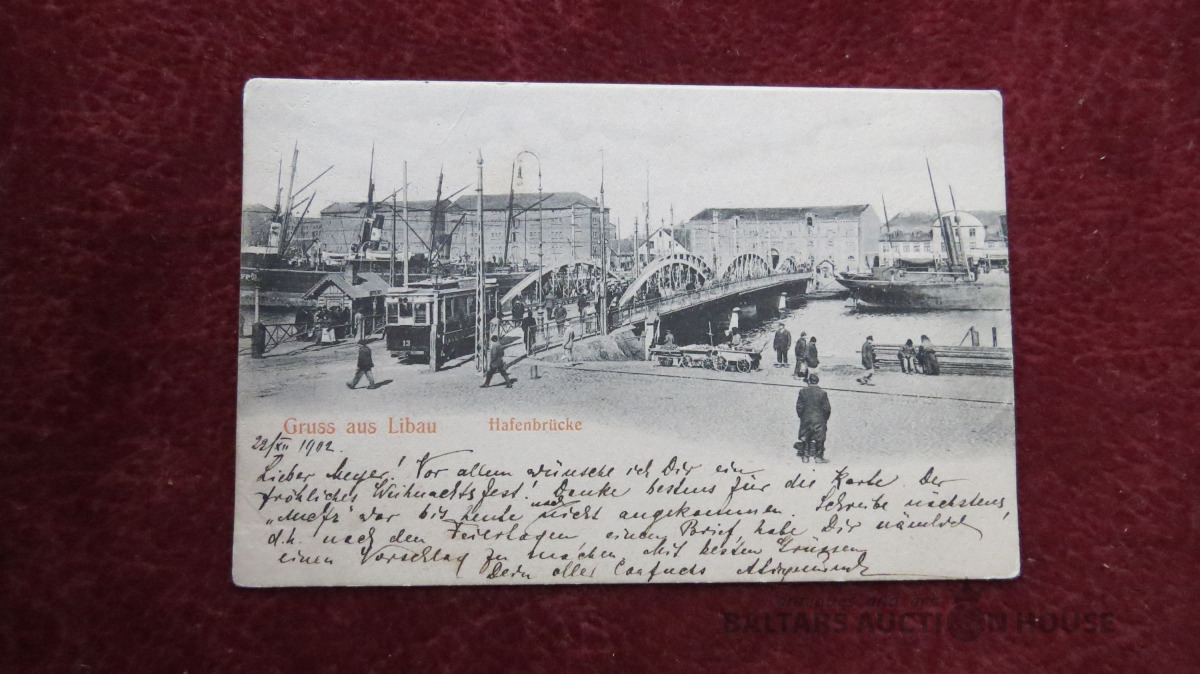 13
Gruss aus Libau Hafenbrücke
22/XII 1902.
Lieber Meyer! Vor allem wünsche ich Dir ein
fröhliches Weihnachtsfest! Danke bestens für die Karte. Der
war bis heute noch nicht angekommen. Schreibe nächstens,
d.h. nach den Feiertagen, einen Brief, habe Dir nämlich
einen Vorschlag zu machen. Mit besten Grüssen
Dein alter Confuchs
BALTARS AUCTION HOUSE